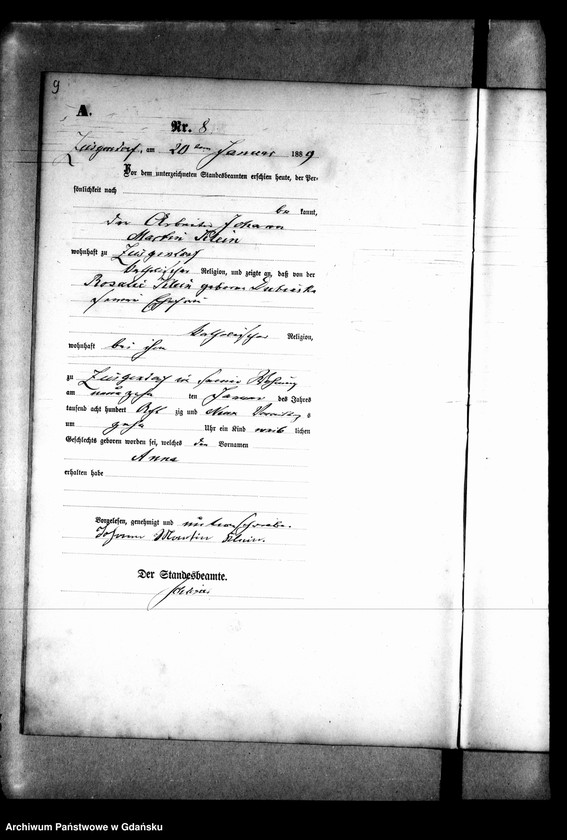 9
A.
Nr. 8
Zeisgendorf, am 20 ten Januar 1889
Vor dem unterzeichneten Standesbeamten erschien heute, der Per-
sönlichkeit nach
be kannt,
der Arbeiter Johann
Martin Klein
wohnhaft zu Zeisgendorf
katholischer Religion, und zeigte an, daß von der
Rosalie Klein geboren
seiner Ehefrau
katholischer Religion,
wohnhaft bei ihm
zu Zeisgendorf in seiner Wohnung
am neunzehn ten Januar des Jahres
tausend acht hundert Acht zig und Neun Vormittag s
um zehn Uhr ein Kind weib lichen
Geschlechts geboren worden sei, welches den Vornamen
Anna
erhalten habe
Vorgelesen, genehmigt und unterschrieben.
Johann Martin Klein.
Der Standesbeamte.
Archiwum Państwowe w Gdańsku